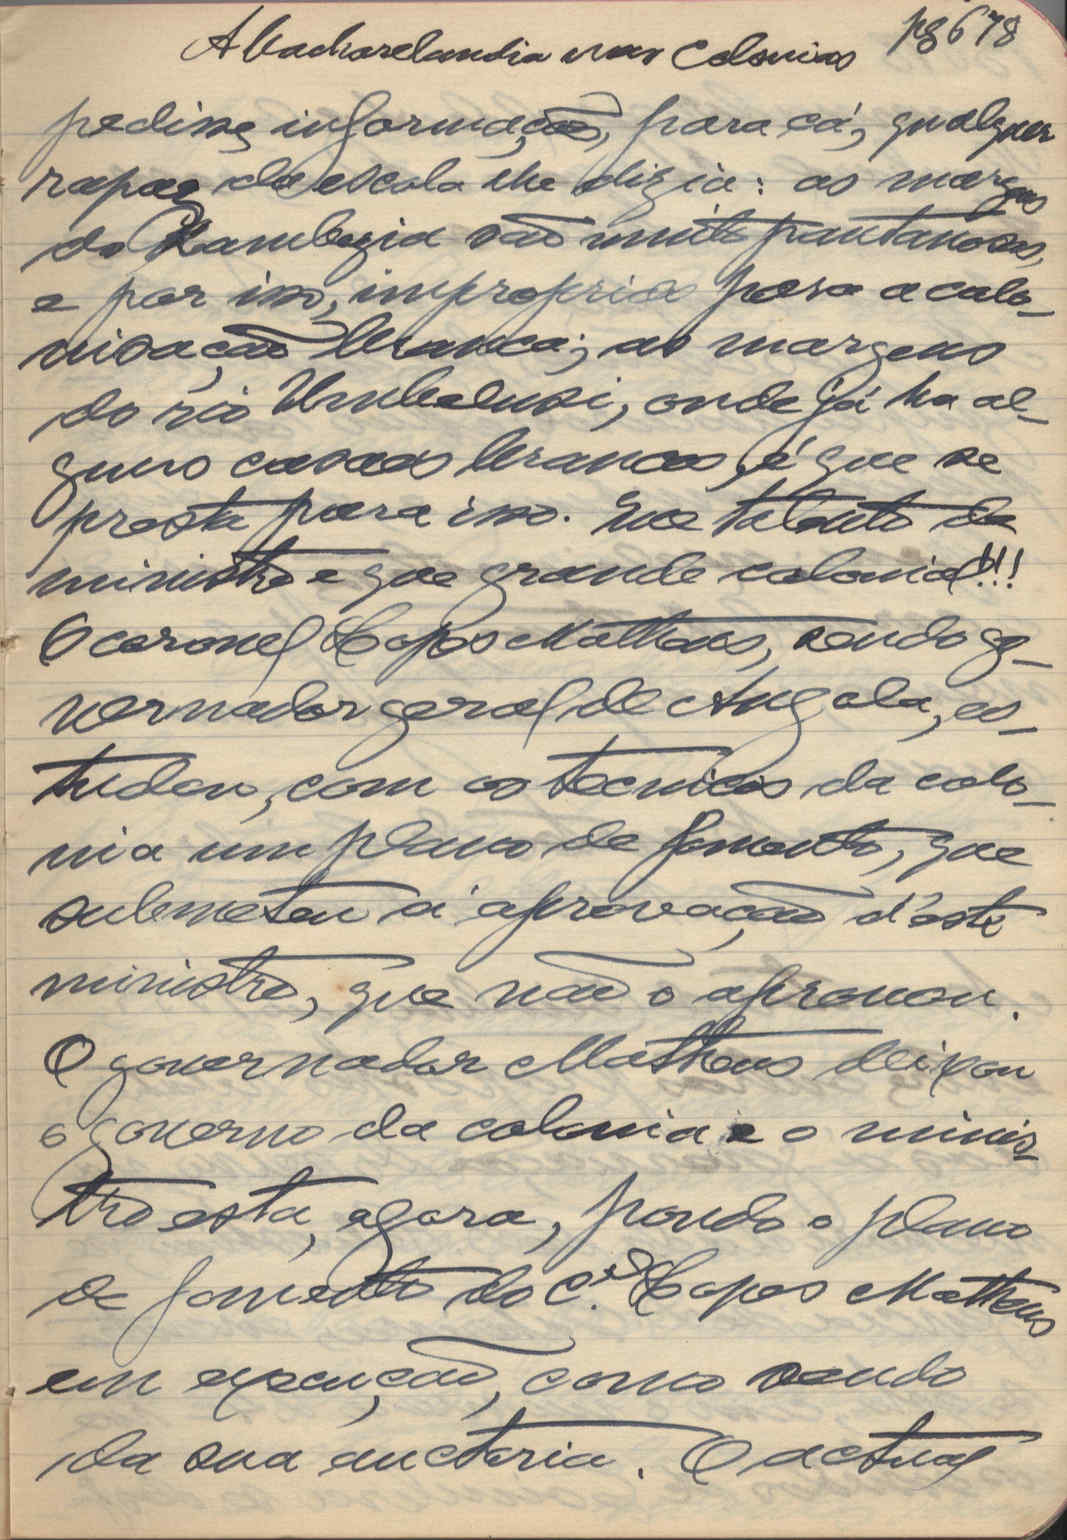 A bacharelandia nas Colonias pg 678
pedisse informação, para cá, qualquer
rapaz da escola lhe dizia: as margens
da Zambezia são muito pantanosas,
e por isso, improprias para a colo-
nisação branca; as margens
do rio Umbeluzi, onde já ha al-
guns casaes brancos, é que se
presta para isso. Que talento de
ministro e que grande colonial!!!
O coronel Lopes Matheus, sendo go-
vernador geral de Angola, es-
tudou, com os tecnicos da colo-
nia um plano de fomento, que
submeteu á aprovação d'este
ministro, que não o aprovou.
O governador Matheus deixou
o governo da colonia e o minis-
tro está, agora, pondo o plano
de fomento do C.el Lopes Matheus
em execução, como sendo
da sua auctoria. O actual